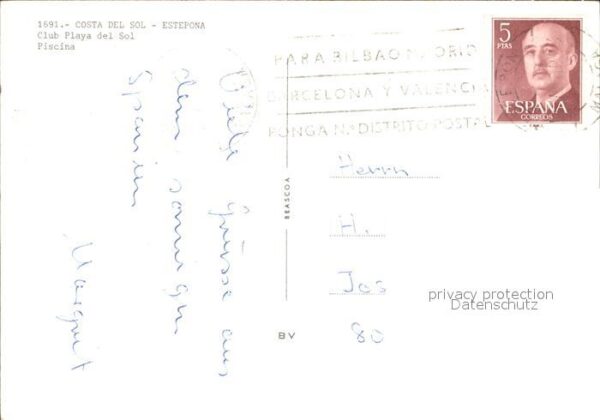 1691.- COSTA DEL SOL - ESTEPONA
Club Playa del Sol
Piscina
Viele Grüsse aus
dem sonnigen
Spanien
Margrit
BEASCOA
BV
PARA BILBAO MADRID
BARCELONA Y VALENCIA
PONGA Nº DISTRITO POSTAL
5
PTAS
ESPAÑA
CORREOS
Herrn
H.
Jos
80
privacy protection
Datenschutz